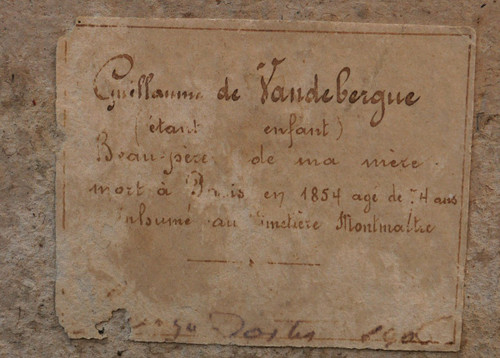 Guillaume de Vandebergue
(étant enfant)
Beau-père de ma mère.
mort à Paris en 1854 agé de 74 ans
inhumé au cimetière Montmaltre